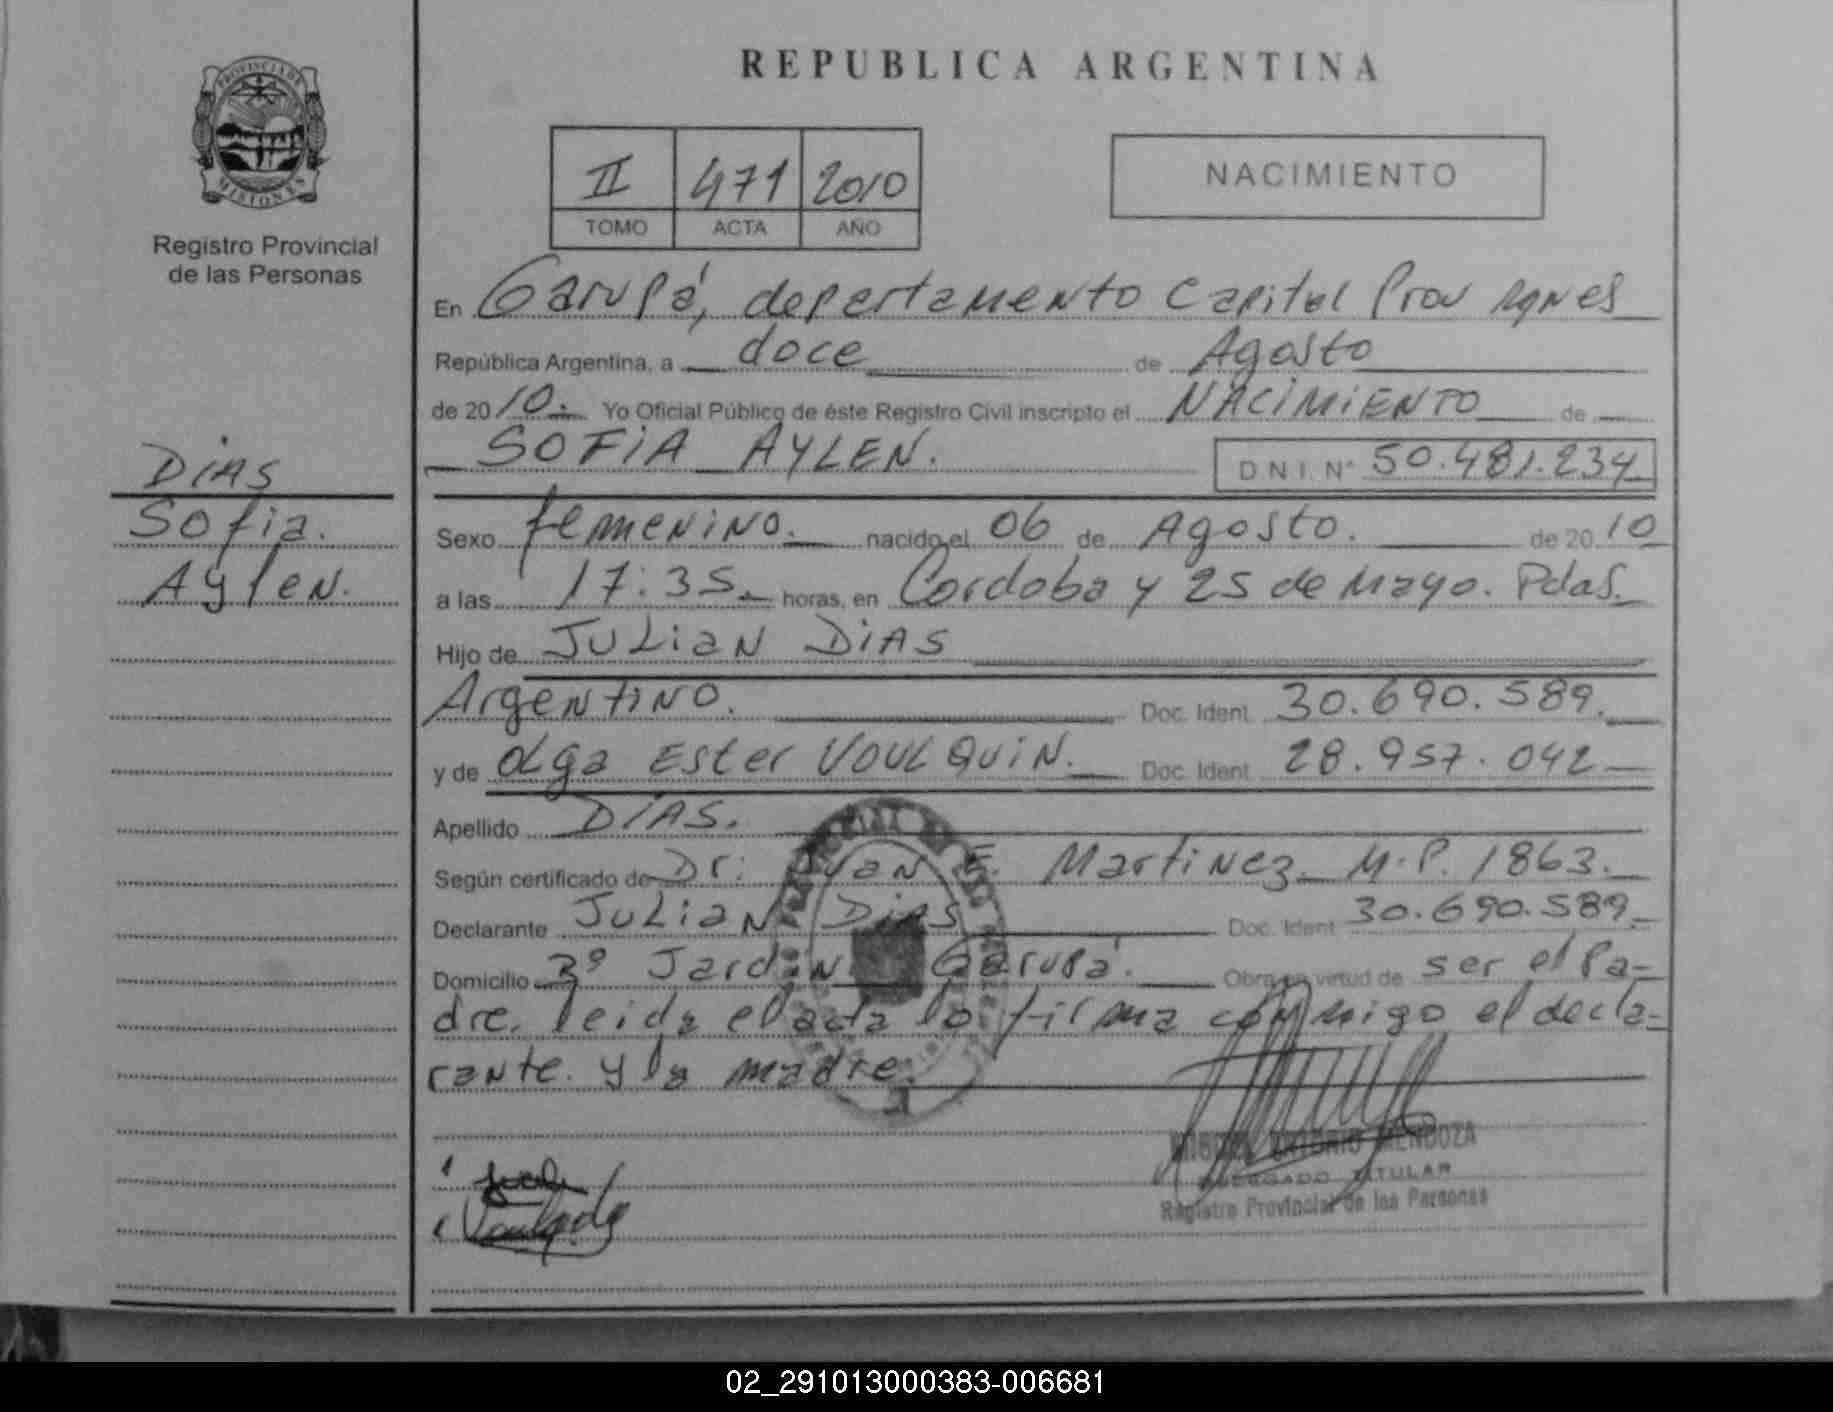 REPUBLICA ARGENTINA
PROVINCIA DE
MISIONES
Registro Provincial
de las Personas
II 471 2010
TOMO ACTA AÑO
NACIMIENTO
En Garupá, departamento Capital Prov
República Argentina, a doce de Agosto
de 2010. Yo Oficial Público de éste Registro Civil inscripto el NACIMIENTO de
SOFIA AYLEN. D.N.I. Nº 50.481.234
DIAS
Sofia.
Aylen.
Sexo femenino. nacido el 06 de Agosto. de 2010
a las 17:35 horas, en Cordoba y 25 de Mayo. Pdas.
Hijo de JULIAN DIAS
Argentino. Doc. Ident. 30.690.589.
y de Olga Ester VOULQUIN. Doc. Ident. 28.957.042
Apellido DIAS.
Según certificado de Dr. Juan E. Martinez. M.P. 1863.
Declarante JULIAN Dias Doc. Ident. 30.690.589
Domicilio 3º Jardin Garupá. Obra en virtud de ser el Pa-
dre. leida el acta la firma conmigo el decla-
rante. y la madre.
MIGUEL ANTONIO MENDOZA
DELEGADO TITULAR
Registro Provincial de las Personas
02_291013000383-006681